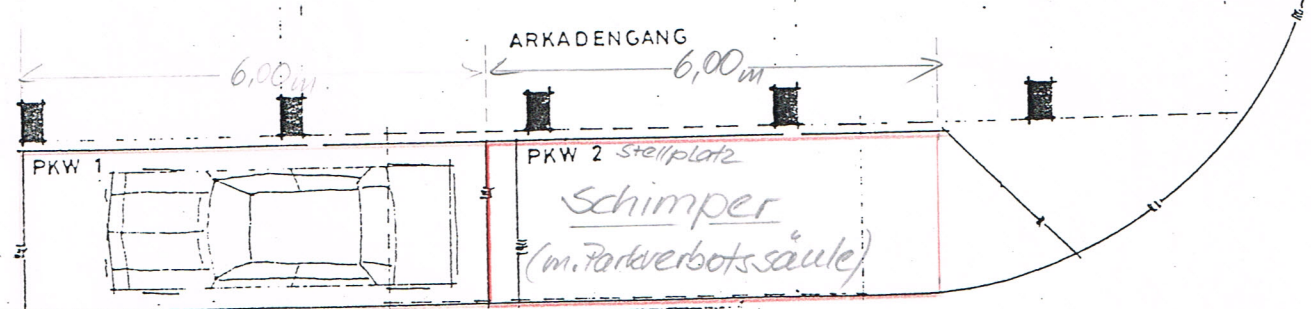 ARKADENGANG
6,00m
6,00m
PKW 1
PKW 2 Stellplatz
Schimper
(m. Parkverbotssäule)